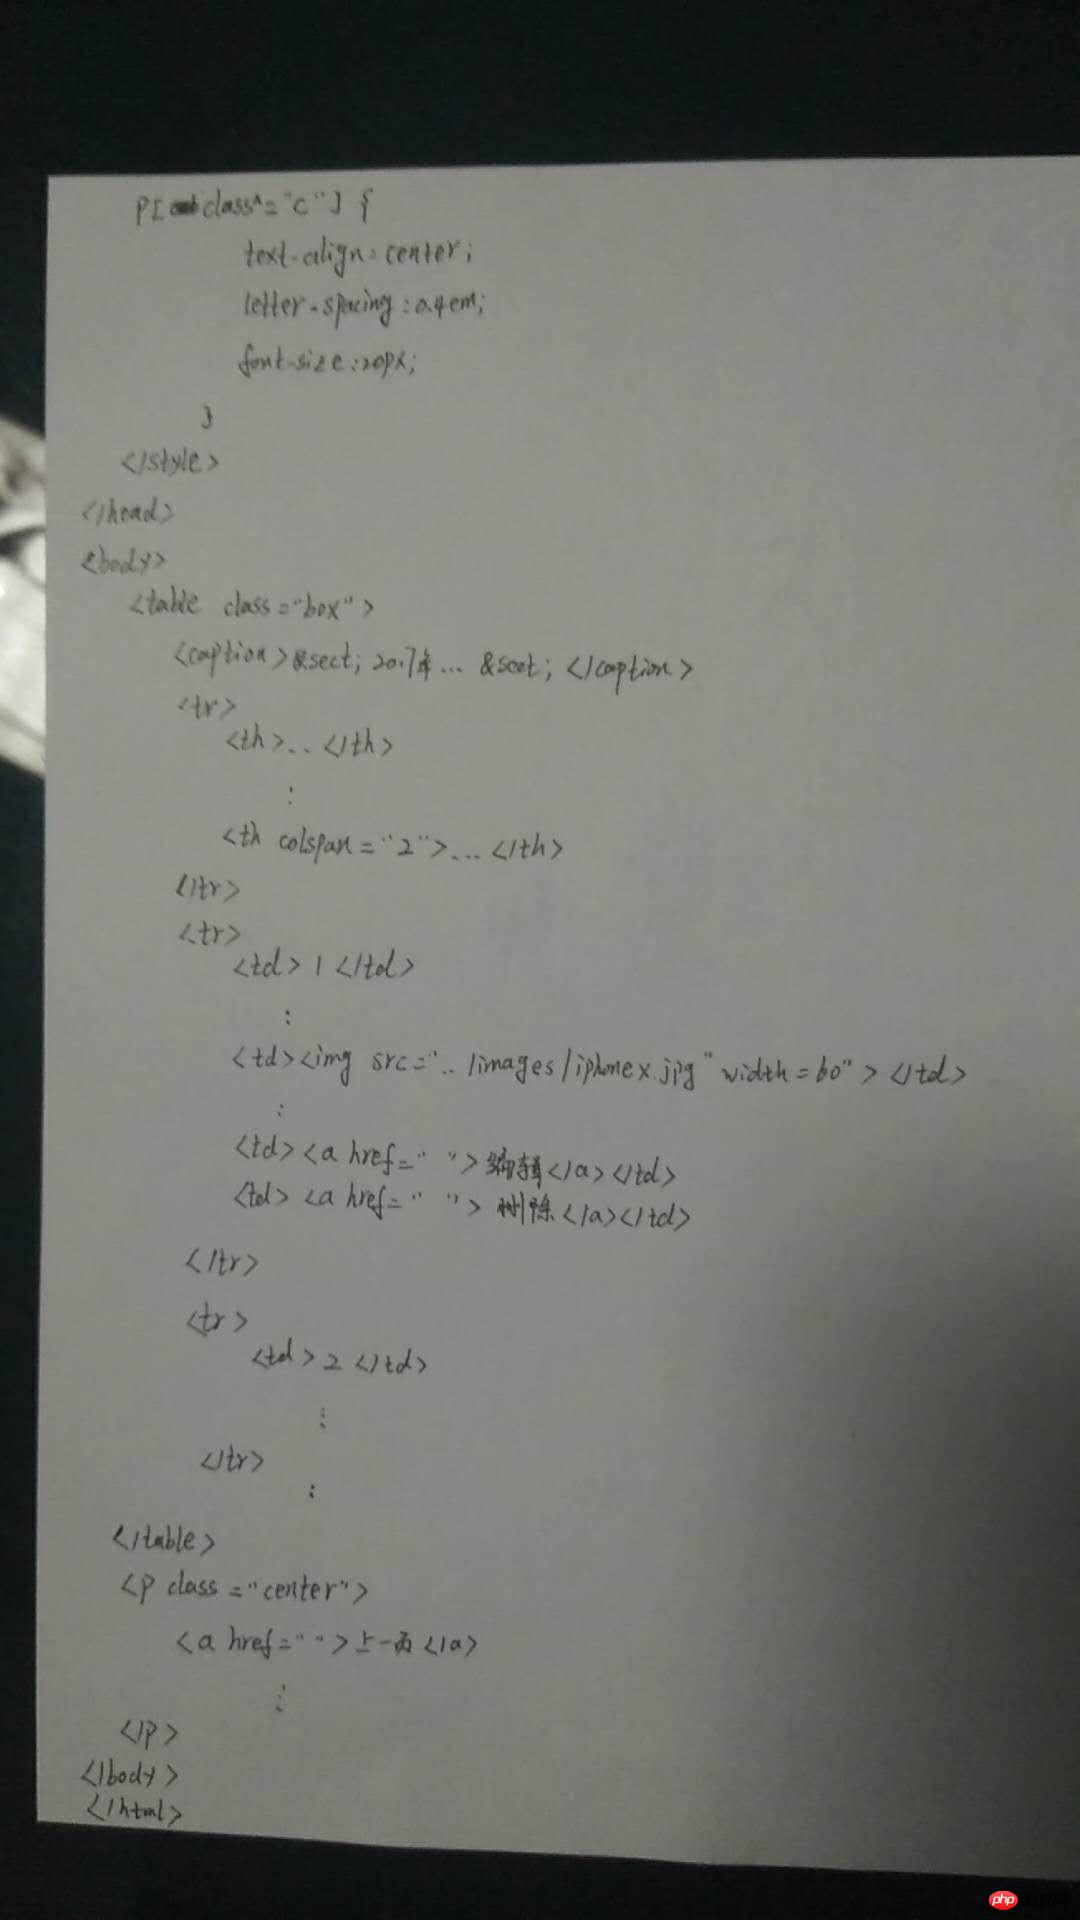 p[class^="c"] {
text-align:center;
letter-spacing:0.4em;
font-size:20px;
}
</style>
</head>
<body>
<table class="box">
<caption>&sect; 2017年... &sect; </caption>
<tr>
<th>... </th>
⋮
<th colspan="2">... </th>
</tr>
<tr>
<td> 1 </td>
⋮
<td><img src="../images/iphonex.jpg" width=60"></td>
⋮
<td><a href=" ">编辑</a></td>
<td><a href=" ">删除</a></td>
</tr>
<tr>
<td>2</td>
⋮
</tr>
⋮
</table>
<p class="center">
<a href=" ">上一页</a>
⋮
</p>
</body>
</html>
php